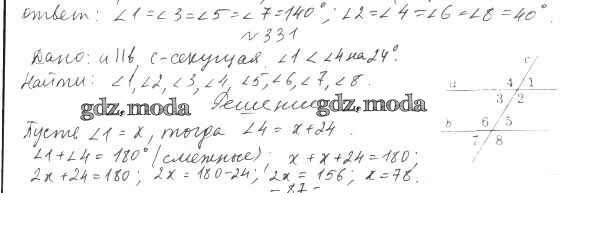 ответ: ∠1=∠3=∠5=∠7=140°; ∠2=∠4=∠6=∠8=40°.
№331
Дано: a||b, c-секущая, ∠1<∠4 на 24°.
Найти: ∠1, ∠2, ∠3, ∠4, ∠5, ∠6, ∠7, ∠8.
gdz.moda Решение gdz.moda
Пусть ∠1=x, тогда ∠4=x+24.
∠1+∠4=180° (смежные); x+x+24=180;
2x+24=180; 2x=180-24; 2x=156; x=78.
-17-
c
a 4 1
3 2
b 6 5
7 8